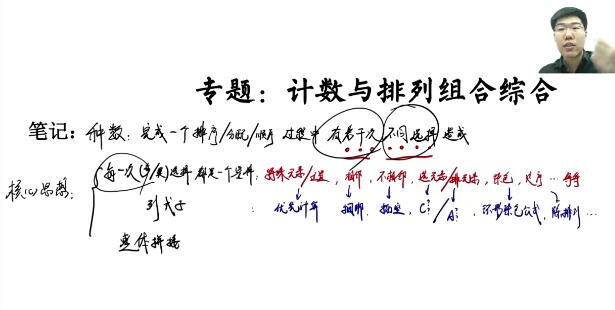 专题：计数与排列组合综合
笔记：种数：完成一个排序/分配/顺序 过程中 有若干次 不同选择 造成
核心思路：每一次(步/类)选择 都是一个安排：特殊元素/位置，相邻，不相邻，选元素/排元素，染色，尺寸…等等
列式子：优先计算 捆绑，插空，C/A，环形染色公式，
整体拼接